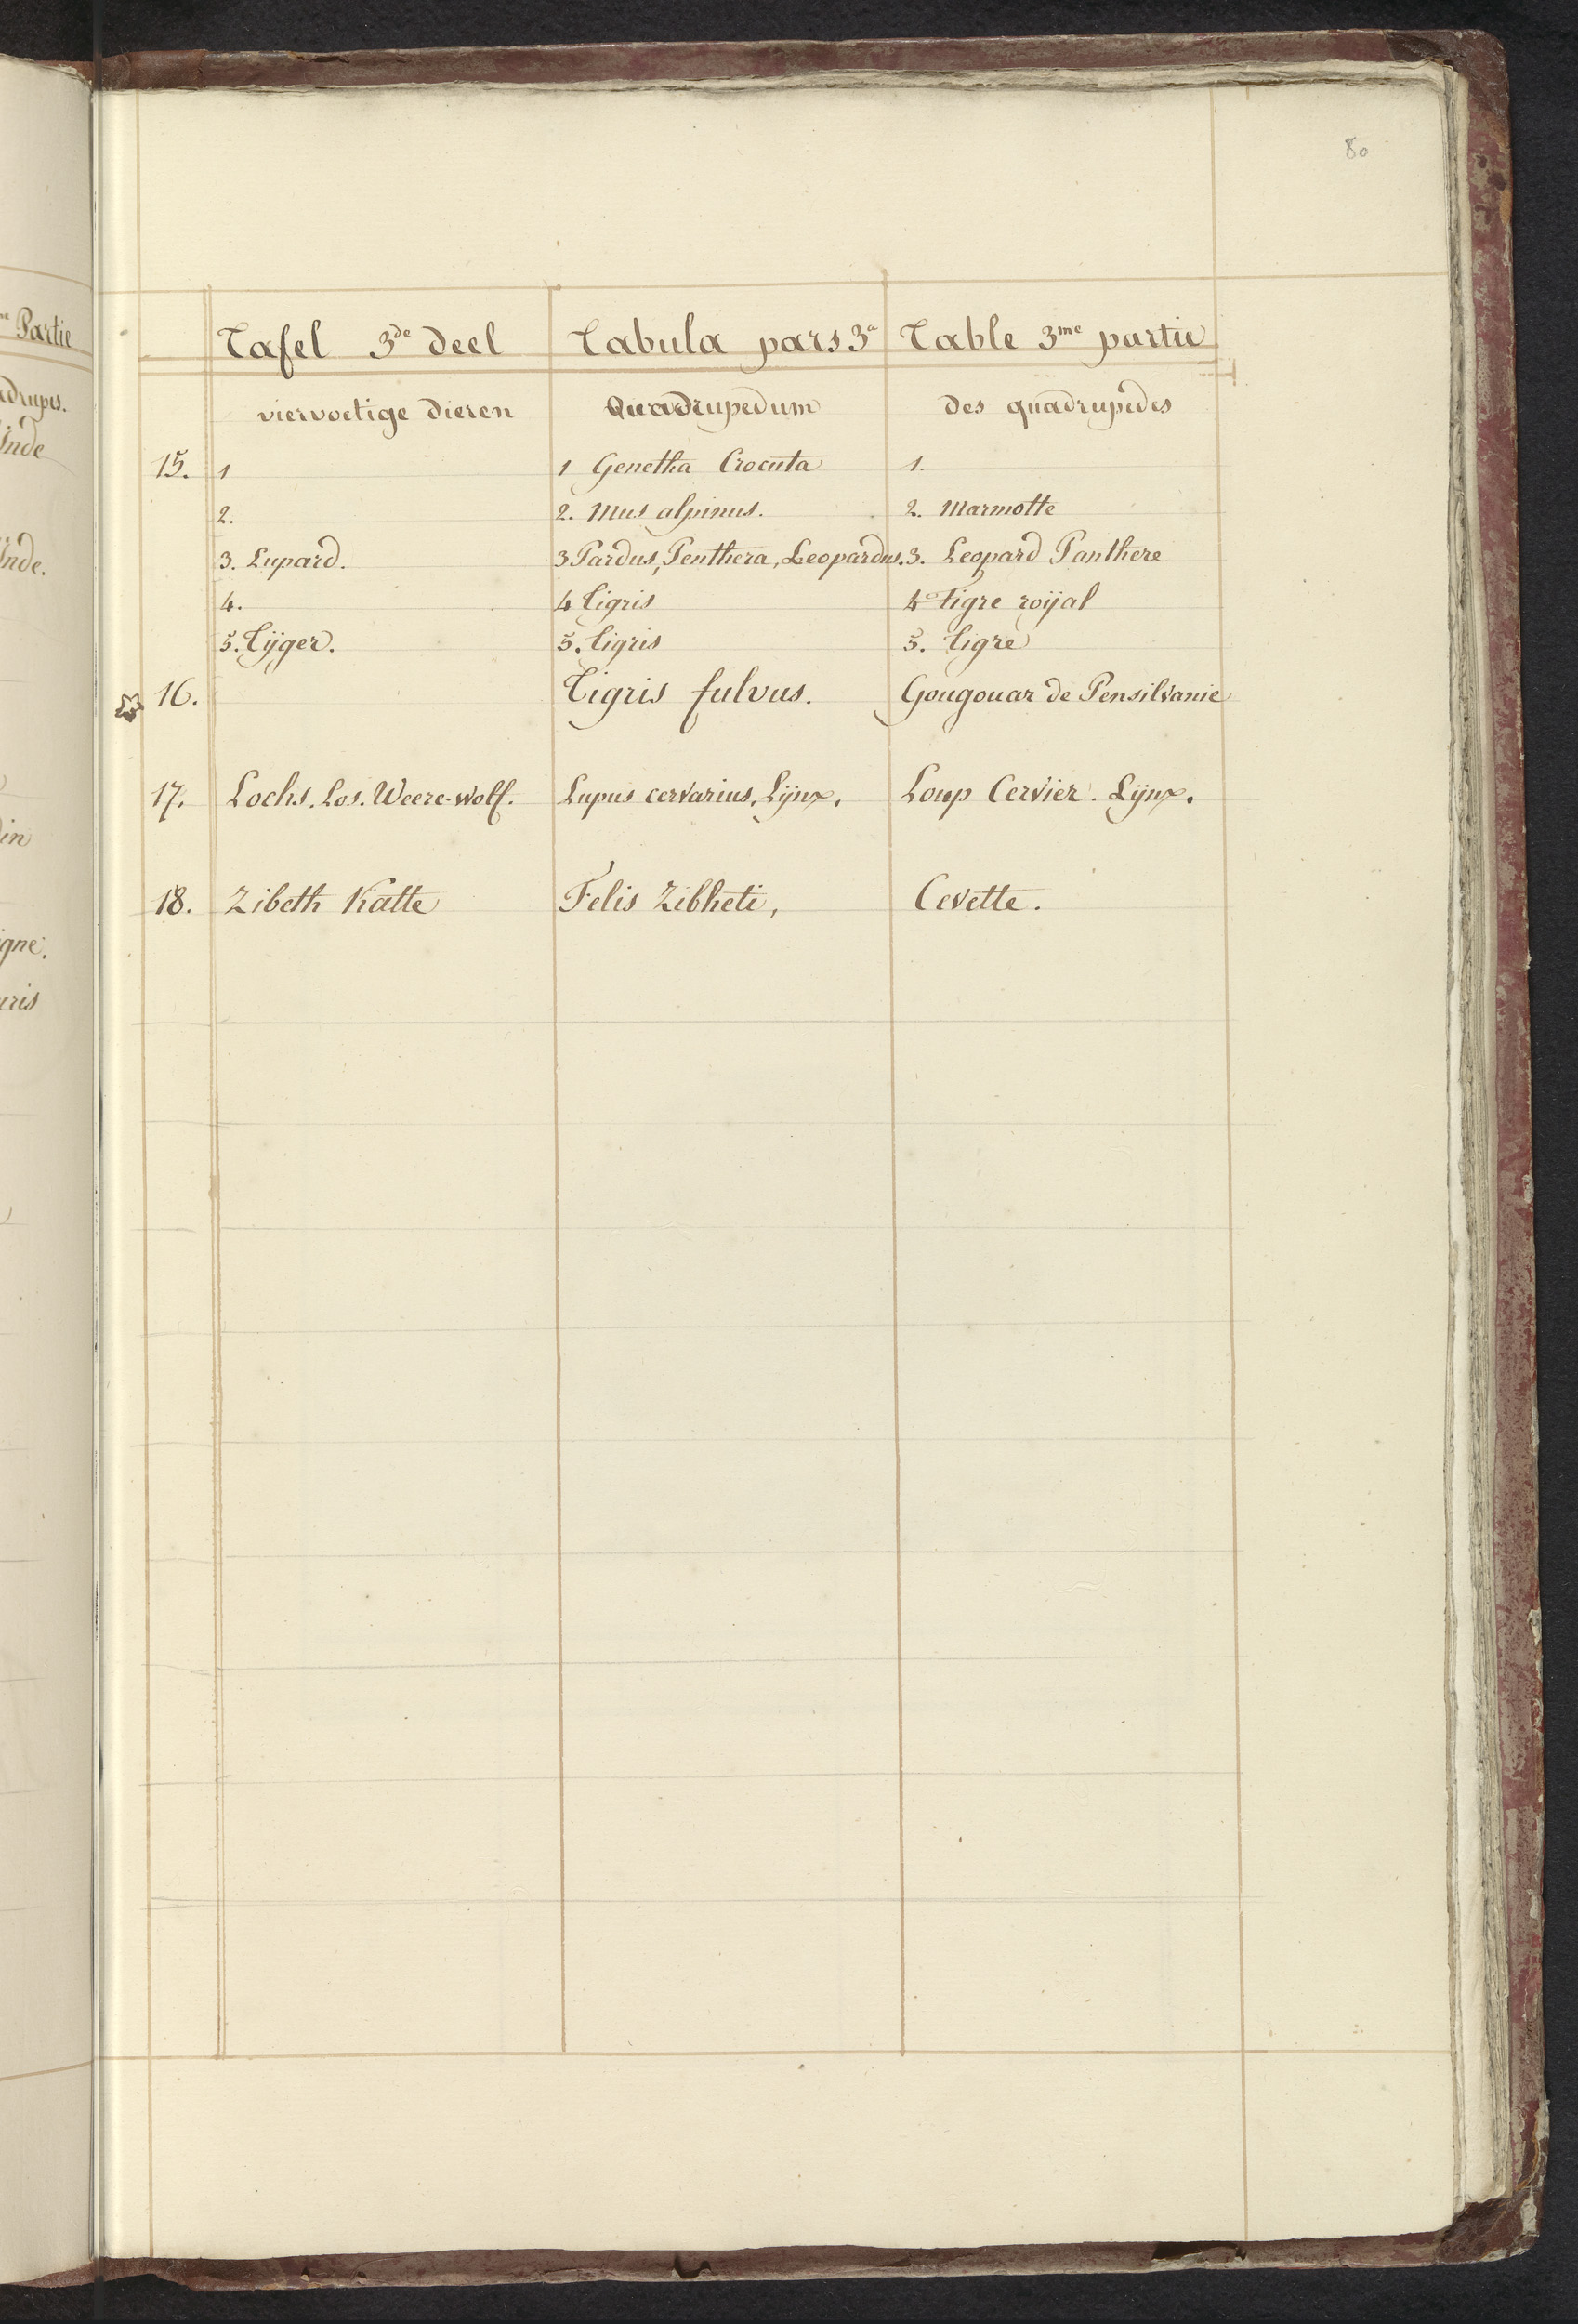 80
Partie
Tafel 3de deel Tabula pars 3a Table 3me partie
viervoetige dieren Quadrupedum des quadrupedes
Inde
15. 1 1 Genetha Crocuta 1.
2. 2. Mus alpinus. 2. Marmotte
3. Lupard. 3 Pardus, Penthera, Leopardus. 3. Leopard Panthere
Inde.
4. 4 Tigris 4 Tigre roijal
5. Tijger. 5. Tigris 5. Tigre
16. Tigris fulvus. Gougouar de Pensilvanie
17. Lochs. Los. Weere-wolf. Lupus cervarius, Lijnx. Loup Cervier. Lijnx.
18. Zibeth Katte Felis Zibheti, Cevette.